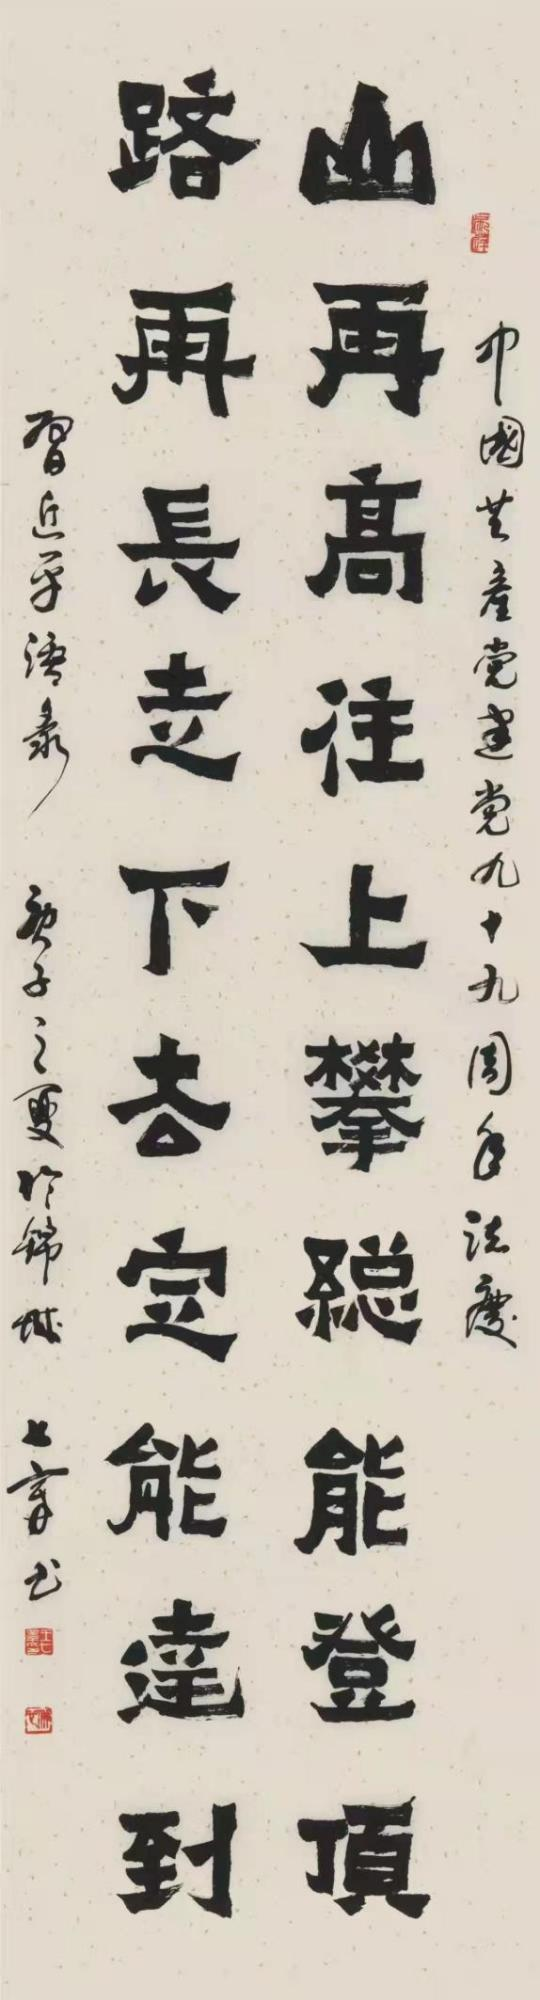 中國共產党建党九十九周年誌慶
山再高往上攀総能登頂
路再長走下去定能達到
習近平語录
庚子之夏於錦城
七章书